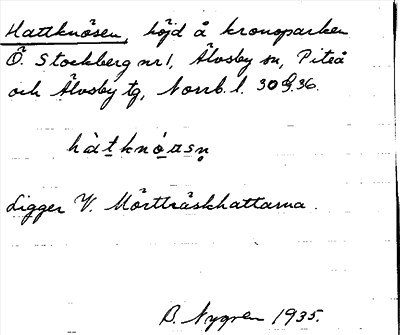 Hattknösen, höjd å kronoparken
Ö. Stockberg nr 1, Älvsby sn, Piteå
och Älvsby tg, Norrb. l. 30 G. 36.
hàtknó̱a̱sn̥
Ligger V. Mörtträskhattarna.
B. Nygren 1935.